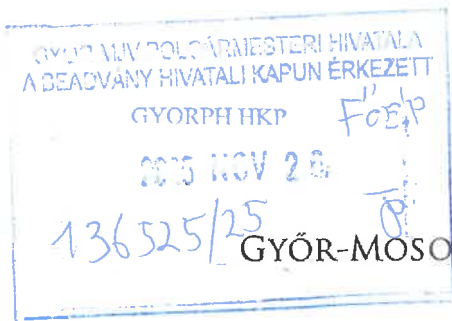 GYŐR MJV POLGÁRMESTERI HIVATALA
A BEADVÁNY HIVATALI KAPUN ÉRKEZETT
GYORPH HKP FŐÉP
NOV 2
136525/25
GYŐR-MOSO